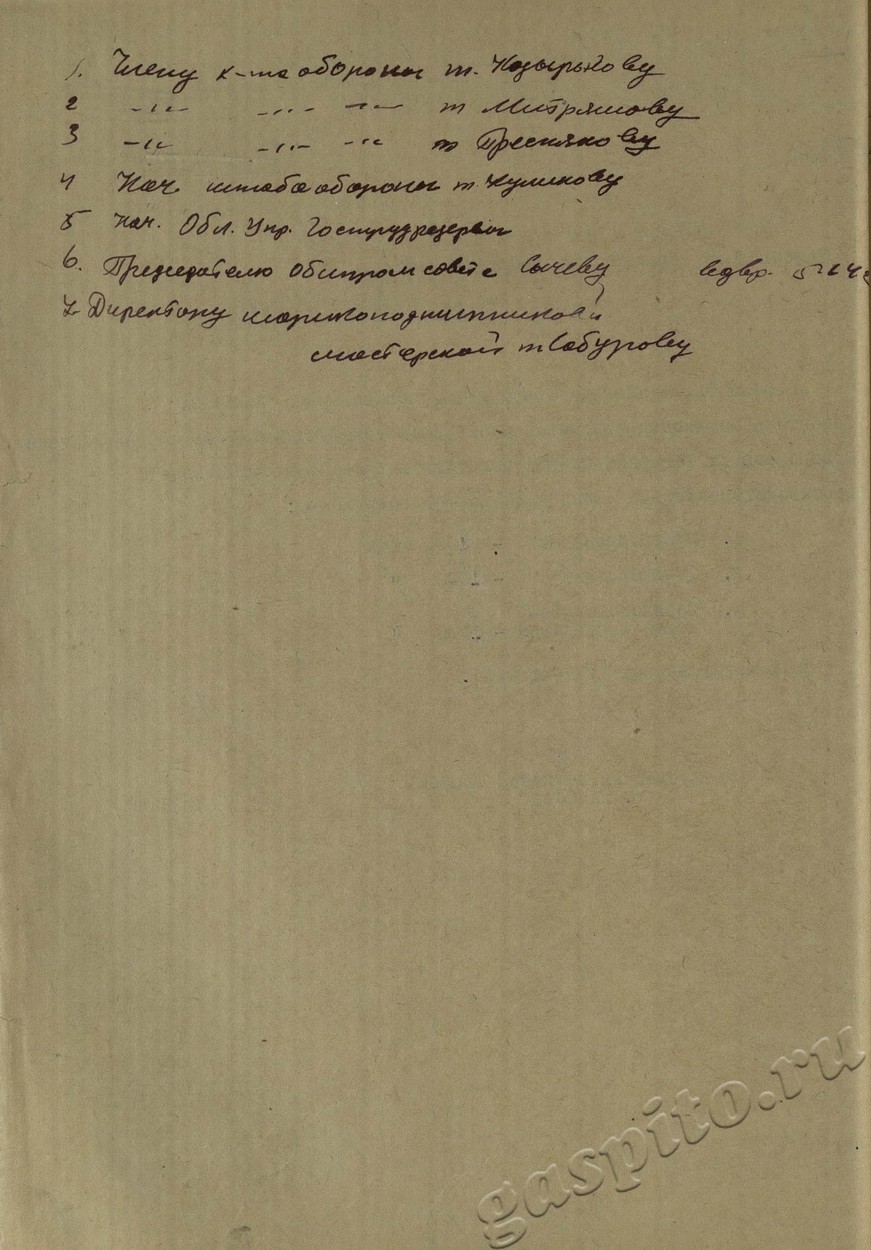 1. Члену к-та обороны т. Козырькову
2 -"- -"- -"- т Митряшову
3 -"- -"- -"- т Преснякову
4 Нач. штаба обороны т. Куликову
5 Нач. Обл. Упр. Гострудрезервы
6. Председателю Облпромсовета Сычеву
7. Директору шарикоподшипниковой
мастерской т Сабурову
gaspito.ru